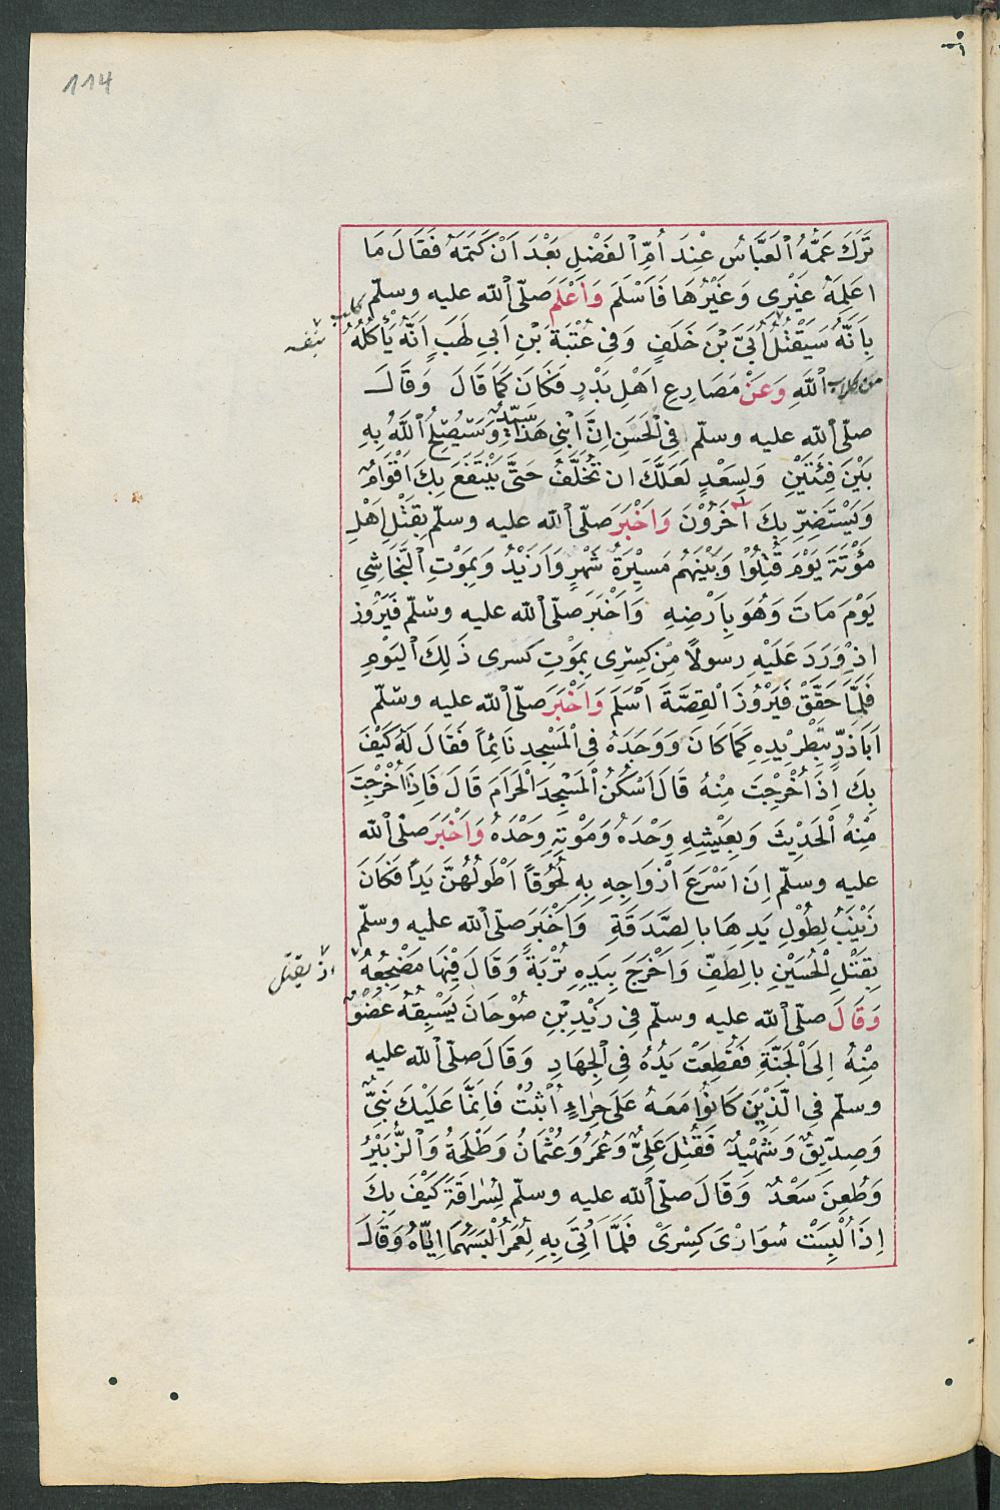 114
تَرَكَ عَمُّهُ الْعَبَّاسُ عِنْدَ أُمِّ الْفَضْلِ بَعْدَ اَنْ كَتَمَهُ فَقَالَ مَا
اعَلِمَهُ غَيْرِى وَغَيْرُهَا فَاَسْلَمَ وَاَعْلَمَ صلّى الله عليه وسلّم
بِاَنَّهُ سَيَقْتُلُ أُبَيَّ بْنَ خَلَفٍ وَفِى عُتْبَةَ بْنِ اَبِى لَهَبٍ اَنَّهُ يَأْكُلُهُ كلب
من كلاب اللهِ وَعَنْ مَصَارِعِ اَهْلِ بَدْرٍ فَكَانَ كَمَا قَالَ وَقَالَ
صلّى الله عليه وسلّم فِى الْحَسَنِ اِنَّ ابْنِى هَذَا سَيِّدٌ وَسَيُصْلِحُ اللهُ بِهِ
بَيْنَ فِئَتَيْنِ وَلِسَعْدٍ لَعَلَّكَ ان تُخَلَّفَ حَتَّى يَنْتَفِعَ بِكَ اَقْوَامٌ
وَيَسْتَضِرَّ بِكَ آخَرُوْنَ وَاَخْبَرَ صلّى الله عليه وسلّم بِقَتْلِ اَهْلِ
مُؤْتَةَ يَوْمَ قُتِلُوْا وَبَيْنَهُمْ مَسِيْرَةُ شَهْرٍ وَاَزْيَدُ وَبِمَوْتِ النَّجَاشِي
يَوْمَ مَاتَ وَهُوَ بِاَرْضِهِ وَاَخْبَرَ صلّى الله عليه وسلّم فَيْرُوز
اذْ وَرَدَ عَلَيْهِ رسولاً مِنْ كِسْرِى بِمَوْتِ كسرى ذَلِكَ الْيَوْمِ
فَلَمَّا حَقَّقَ فَيْرُوْزَ الْقِصَّةَ اَسْلَمَ وَاَخْبَرَ صلّى الله عليه وسلّم
اَبَا ذَرٍّ بِتَطْرِيْدِهِ كَمَا كَانَ وَوَجَدَهُ فِى الْمَسْجِدِ نَائِماً فَقَالَ لَهُ كَيْفَ
بِكَ اِذَا أُخْرِجْتَ مِنْهُ قَالَ اَسْكُنُ الْمَسْجِدَ الْحَرَامَ قَالَ فَاِذَا أُخْرِجْتَ
مِنْهُ الْحَدِيْثَ وَبِعَيْشِهِ وَحْدَهُ وَمَوْتِهِ وَحْدَهُ وَاَخْبَرَ صلّى الله
عليه وسلّم اِنَ اسْرَعَ اَزْوَاجِهِ بِهِ لُحُوْقاً اَطْوَلُهُنَّ يَداً فَكَانَ
زَيْنَبُ لِطُوْلِ يَدِهَا بالِصَّدَقَةِ وَاَخْبَرَ صلّى الله عليه وسلّم
بِقَتْلِ الْحُسَيْنِ بالِطَّفِّ وَاَخْرَجَ بِيَدِهِ تُرْبَةً وَقَالَ فِيْهَا مَضْجِعُهُ
وَقَالَ صلّى الله عليه وسلّم فِى زَيْدِ بْنِ صُوْحَانَ يَسْبِقُهُ عُضْوٌ
مِنْهُ اِلَى الْجَنَّةِ فَقُطِعَتْ يَدُهُ فِى الْجِهَادِ وَقَالَ صلّى الله عليه
وسلّم فِى الَّذِيْنَ كَانُوْا مَعَهُ عَلَى حِرَاءٍ أُثْبُتْ فَاِنَّمَا عَلَيْكَ نَبِىٌّ
وَصِدِّيْقٌ وَشَهِيْدٌ فَقُتِلَ عَلِىٌّ وَعُمَرُ وَعُثْمَانُ وَطَلْحَةُ وَالزُّبَيْرُ
وَطُعِنَ سَعْدٌ وَقَالَ صلّى الله عليه وسلّم لِسُرَاقَةَ كَيْفَ بِكَ
اِذَا أُلْبِسْتَ سُوَارَىْ كِسْرَىْ فَلَمَّا اُتِىَ بِهِ لِعُمَرَ اَلْبَسَهُمَا اِيَّاهُ وَقَالَ